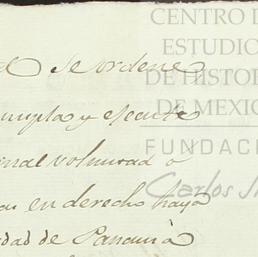 CENTRO D
ESTUDIO
DE HISTOR
DE MEXIC
FUNDAC
Carlos Sl
se ordene
cumpla y ejecute
voluntad o
en derecho haya
dad de Panamá